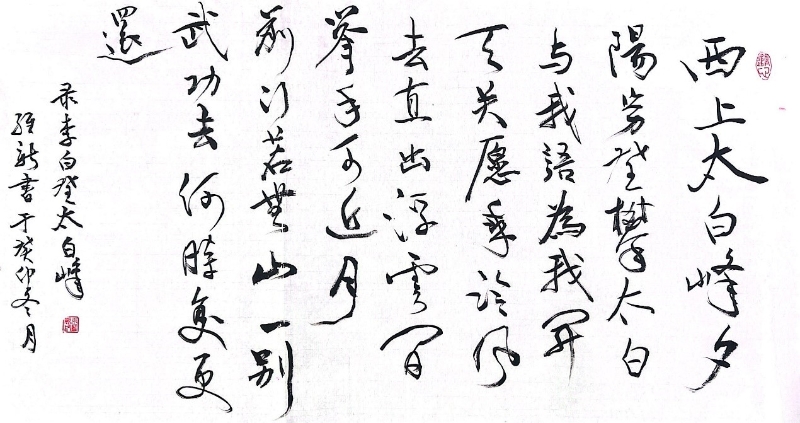 西上太白峰夕
陽穷登攀太白
与我語為我開
天关愿乘泠风
去直出浮雲间
举手可近月
前行若無山一别
武功去何時复更
還
录李白登太白峰
新書于癸卯冬月